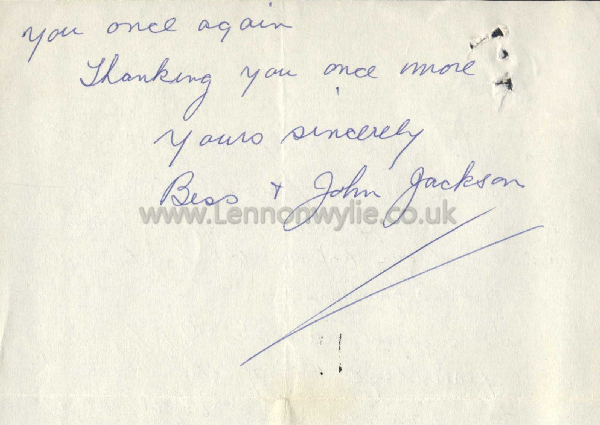 you once again
Thanking you once more
Yours sincerely
Bess + John Jackson
www.Lennonwylie.co.uk